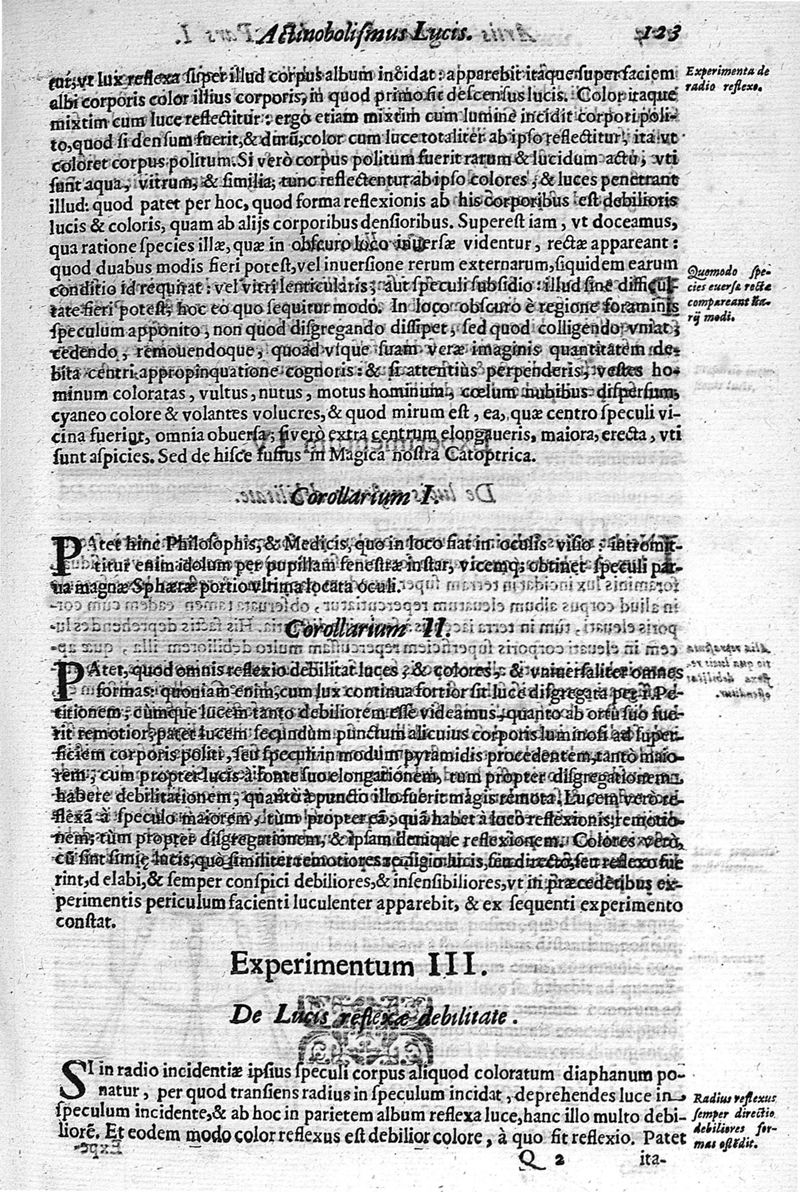 Actinobolismus Lycis. 123
tur, vt lux reflexa super illud corpus album incidat: apparebit itaque super faciem
albi corporis color illius corporis, in quod primo fit descensus lucis. Color itaque
mixtim cum luce reflectitur: ergo etiam mixtim cum lumine incidit corpori poli-
to, quod si densum fuerit, & durũ, color cum luce totaliter ab ipso reflectitur, ita vt
coloret corpus politum. Si verò corpus politum fuerit rarum & lucidum actu; vti
sunt aqua, vitrum, & similia; tunc reflectentur ab ipso colores, & luces penetrant
illud: quod patet per hoc, quod forma reflexionis ab his corporibus est debilioris
lucis & coloris, quam ab alijs corporibus densioribus. Superest iam, vt doceamus,
qua ratione species illæ, quæ in obscuro loco inuersæ videntur, rectæ appareant:
quod duabus modis fieri potest, vel inuersione rerum externarum, siquidem earum
conditio id requirat: vel vitri lenticularis; aut speculi subsidio: illud sine difficul-
tate fieri potest; hoc eo quo sequitur modo. In loco obscuro è regione foraminis
speculum apponito, non quod disgregando dissipet, sed quod colligendo vniat;
cedendo, remouendoque, quoad vsque suam veræ imaginis quantitatem de-
bita centri appropinquatione cognoris: & si attentiùs perpenderis, vestes ho-
minum coloratas, vultus, nutus, motus hominum, cœlum nubibus dispersum,
cyaneo colore & volantes volucres, & quod mirum est, ea, quæ centro speculi vi-
cina fuerint, omnia obuersa; si verò extra centrum elongaueris, maiora, erecta, vti
sunt aspicies. Sed de hisce fusius in Magica nostra Catoptrica.
Experimenta de
radio reflexo.
Quomodo spe-
cies euersæ rectæ
compareant va-
rij modi.
Corollarium I.
PAtet hinc Philosophis, & Medicis, quo in loco fiat in oculis visio: intromit-
titur enim idolum per pupillam fenestræ instar, vicemq; obtinet speculi par-
ua magnæ Sphæræ portio vltima locata oculi.
Corollarium II.
PAtet, quod omnis reflexio debilitat luces, & colores, & vniuersaliter omnes
formas: quoniam enim, cum lux continua fortior sit luce disgregata per
titionem; cùmque lucem tanto debiliorem esse videamus, quanto ab ortu suo fue-
rit remotior, patet lucem secundum punctum alicuius corporis luminosi ad superi-
ficiem corporis politi, seu speculi in modum pyramidis procedentem, tantò maio-
rem; cum propter lucis à fonte suo elongationem, tum propter disgregationem
habere debilitationem; quantò à puncto illo fuerit magis remota. Lucem verò re-
flexã à speculo maiorem, tùm propter eã, quã habet à loco reflexionis remotio-
nem; tùm propter disgregationem, & ipsam denique reflexionem. Colores verò,
cũ sint simiæ lucis, quò similiter remotiores se à lucis, seu directo, seu reflexo fue
rint, delabi, & semper conspici debiliores, & insensibiliores, vt in præcedẽtibus ex-
perimentis periculum facienti luculenter apparebit, & ex sequenti experimento
constat.
Experimentum III.
De Lucis reflexæ debilitate.
SI in radio incidentiæ ipsius speculi corpus aliquod coloratum diaphanum po-
natur, per quod transiens radius in speculum incidat, deprehendes luce in
speculum incidente, & ab hoc in parietem album reflexa luce, hanc illo multo debi-
liorẽ. Et eodem modo color reflexus est debilior colore, à quo fit reflexio. Patet
Radius reflexus
semper directio
debiliores for-
mas ostẽdit.
Q 2 ita-